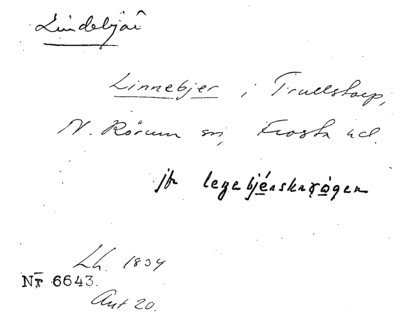 Lindebjär
Linnebjer i Trulstorp,
N. Rörum sn, Frosta hd.
jfr legebjérskrɣǫgen
Lh. 1834
Nr 6643.
Ant 20.